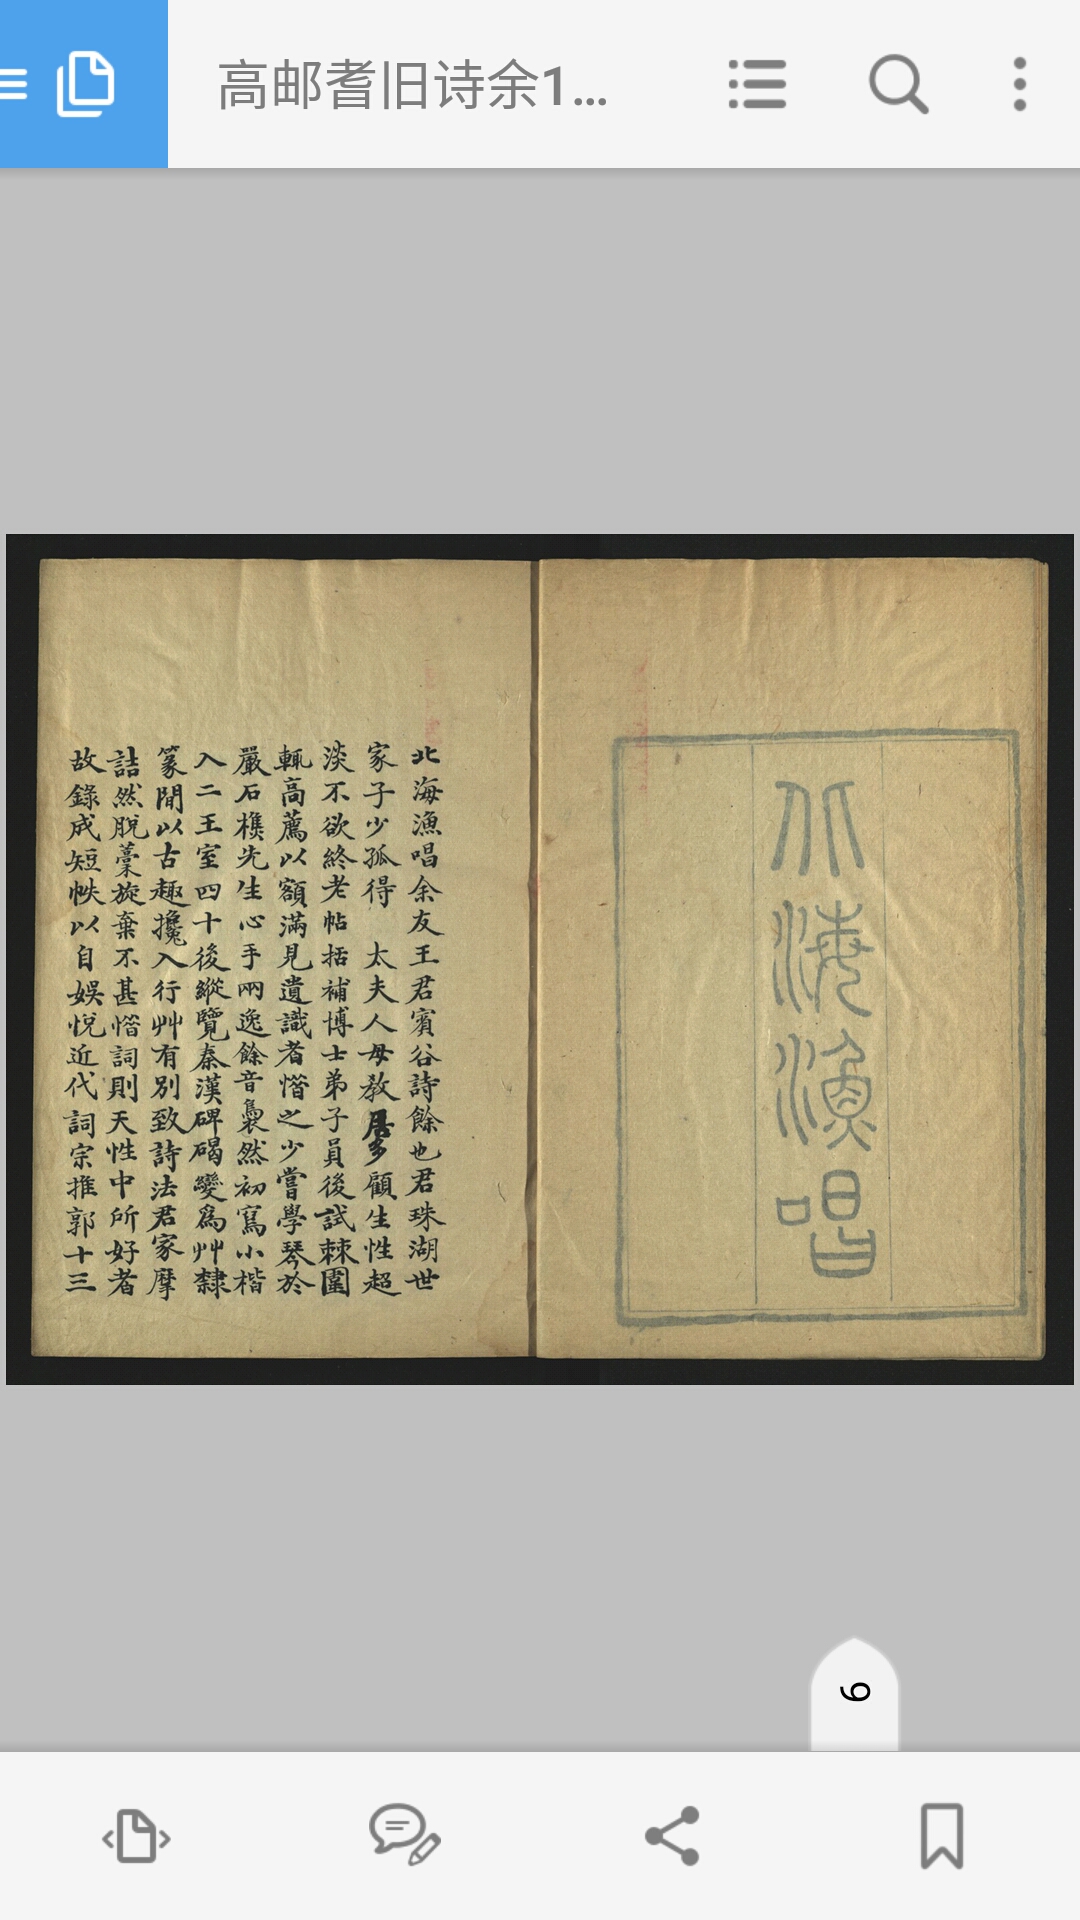 高邮耆旧诗余1...
北海漁唱
北海漁唱余友王君賓谷詩餘也君珠湖世
家子少孤得 太夫人母教居多顧生性超
淡不欲終老帖括補博士弟子員後試棘圍
輒高薦以額滿見遺識者惜之少嘗學琴於
嚴石樵先生心手兩逸餘音裊然初寫小楷
入二王室四十後縱覽秦漢碑碣變為艸隸
篆閒以古趣攙入行艸有別致詩法君家摩
詰然脫藁旋棄不甚惜詞則天性中所好者
故錄成短帙以自娛悅近代詞宗推郭十三
6